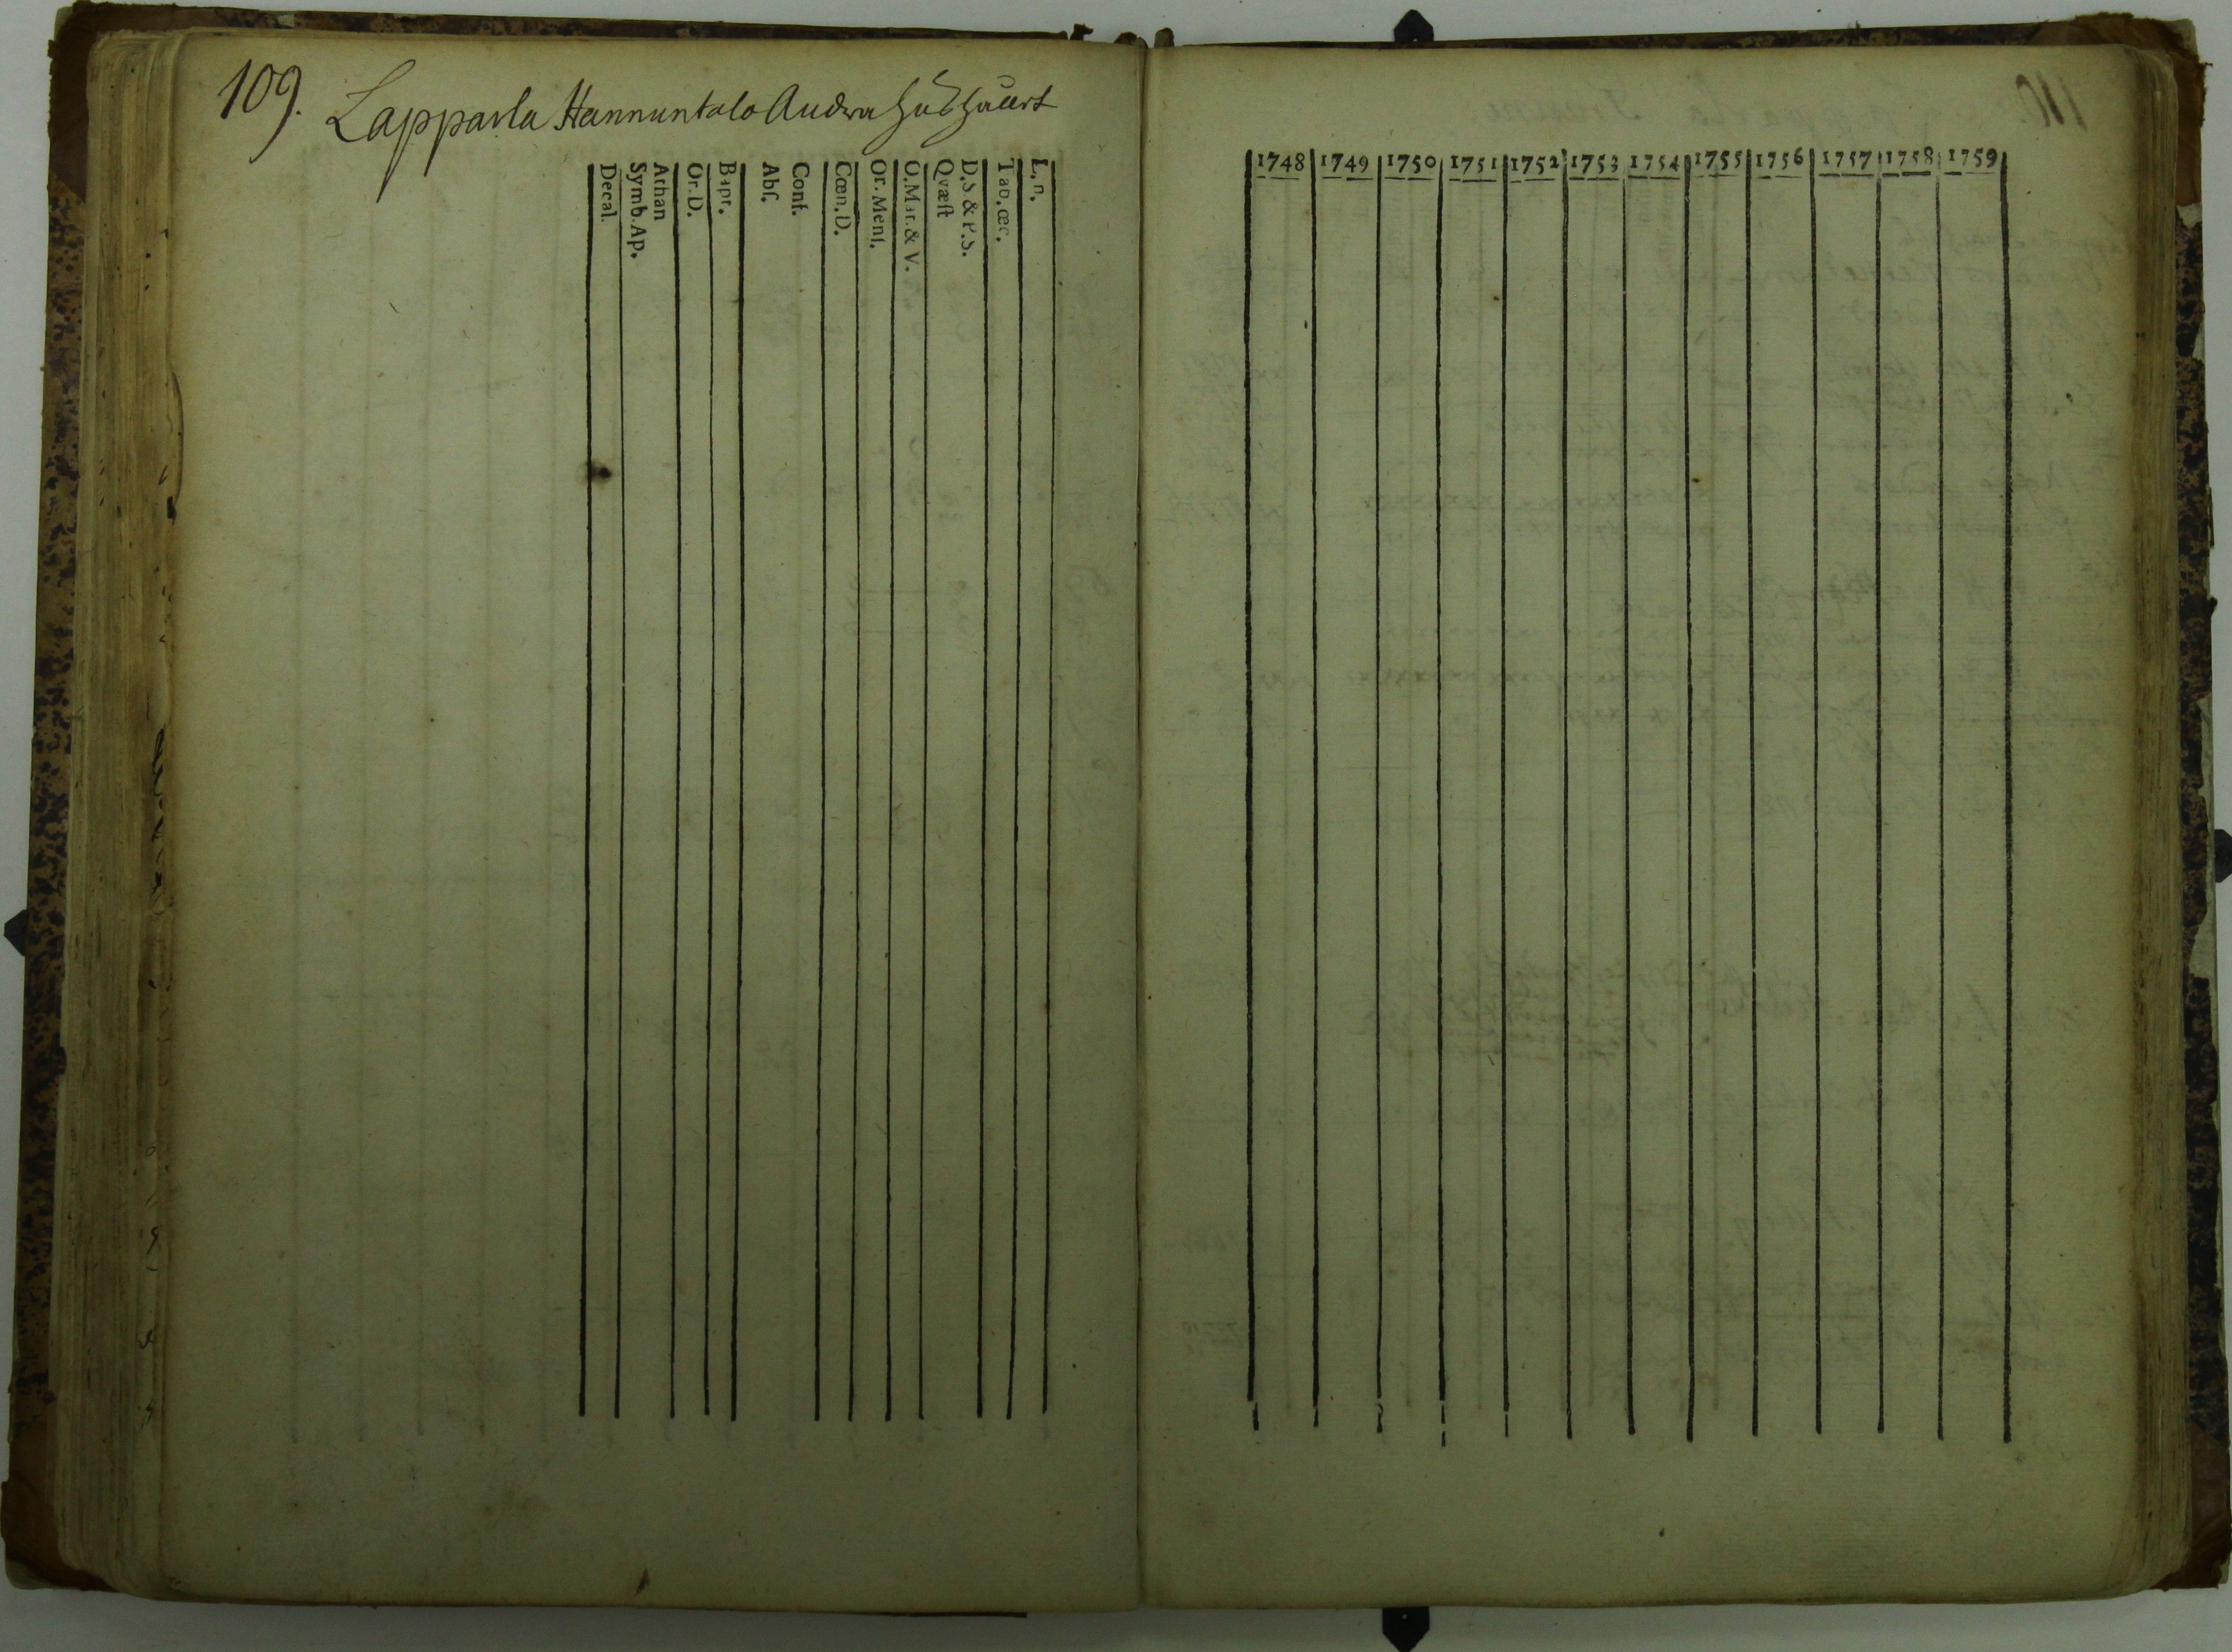 109. Lapparla Hannuntalo Audra
Decal.
Symb. Ap.
Athan
Or. D.
Bapt.
Abſ.
Conf.
Cœn. D.
Or. Menſ.
O. Mat. & V.
Qvæſt
D. S & P. S.
Tab. œc.
L. n.
1748 1749 1750 1751 1752 1753 1754 1755 1756 1757 1758 1759